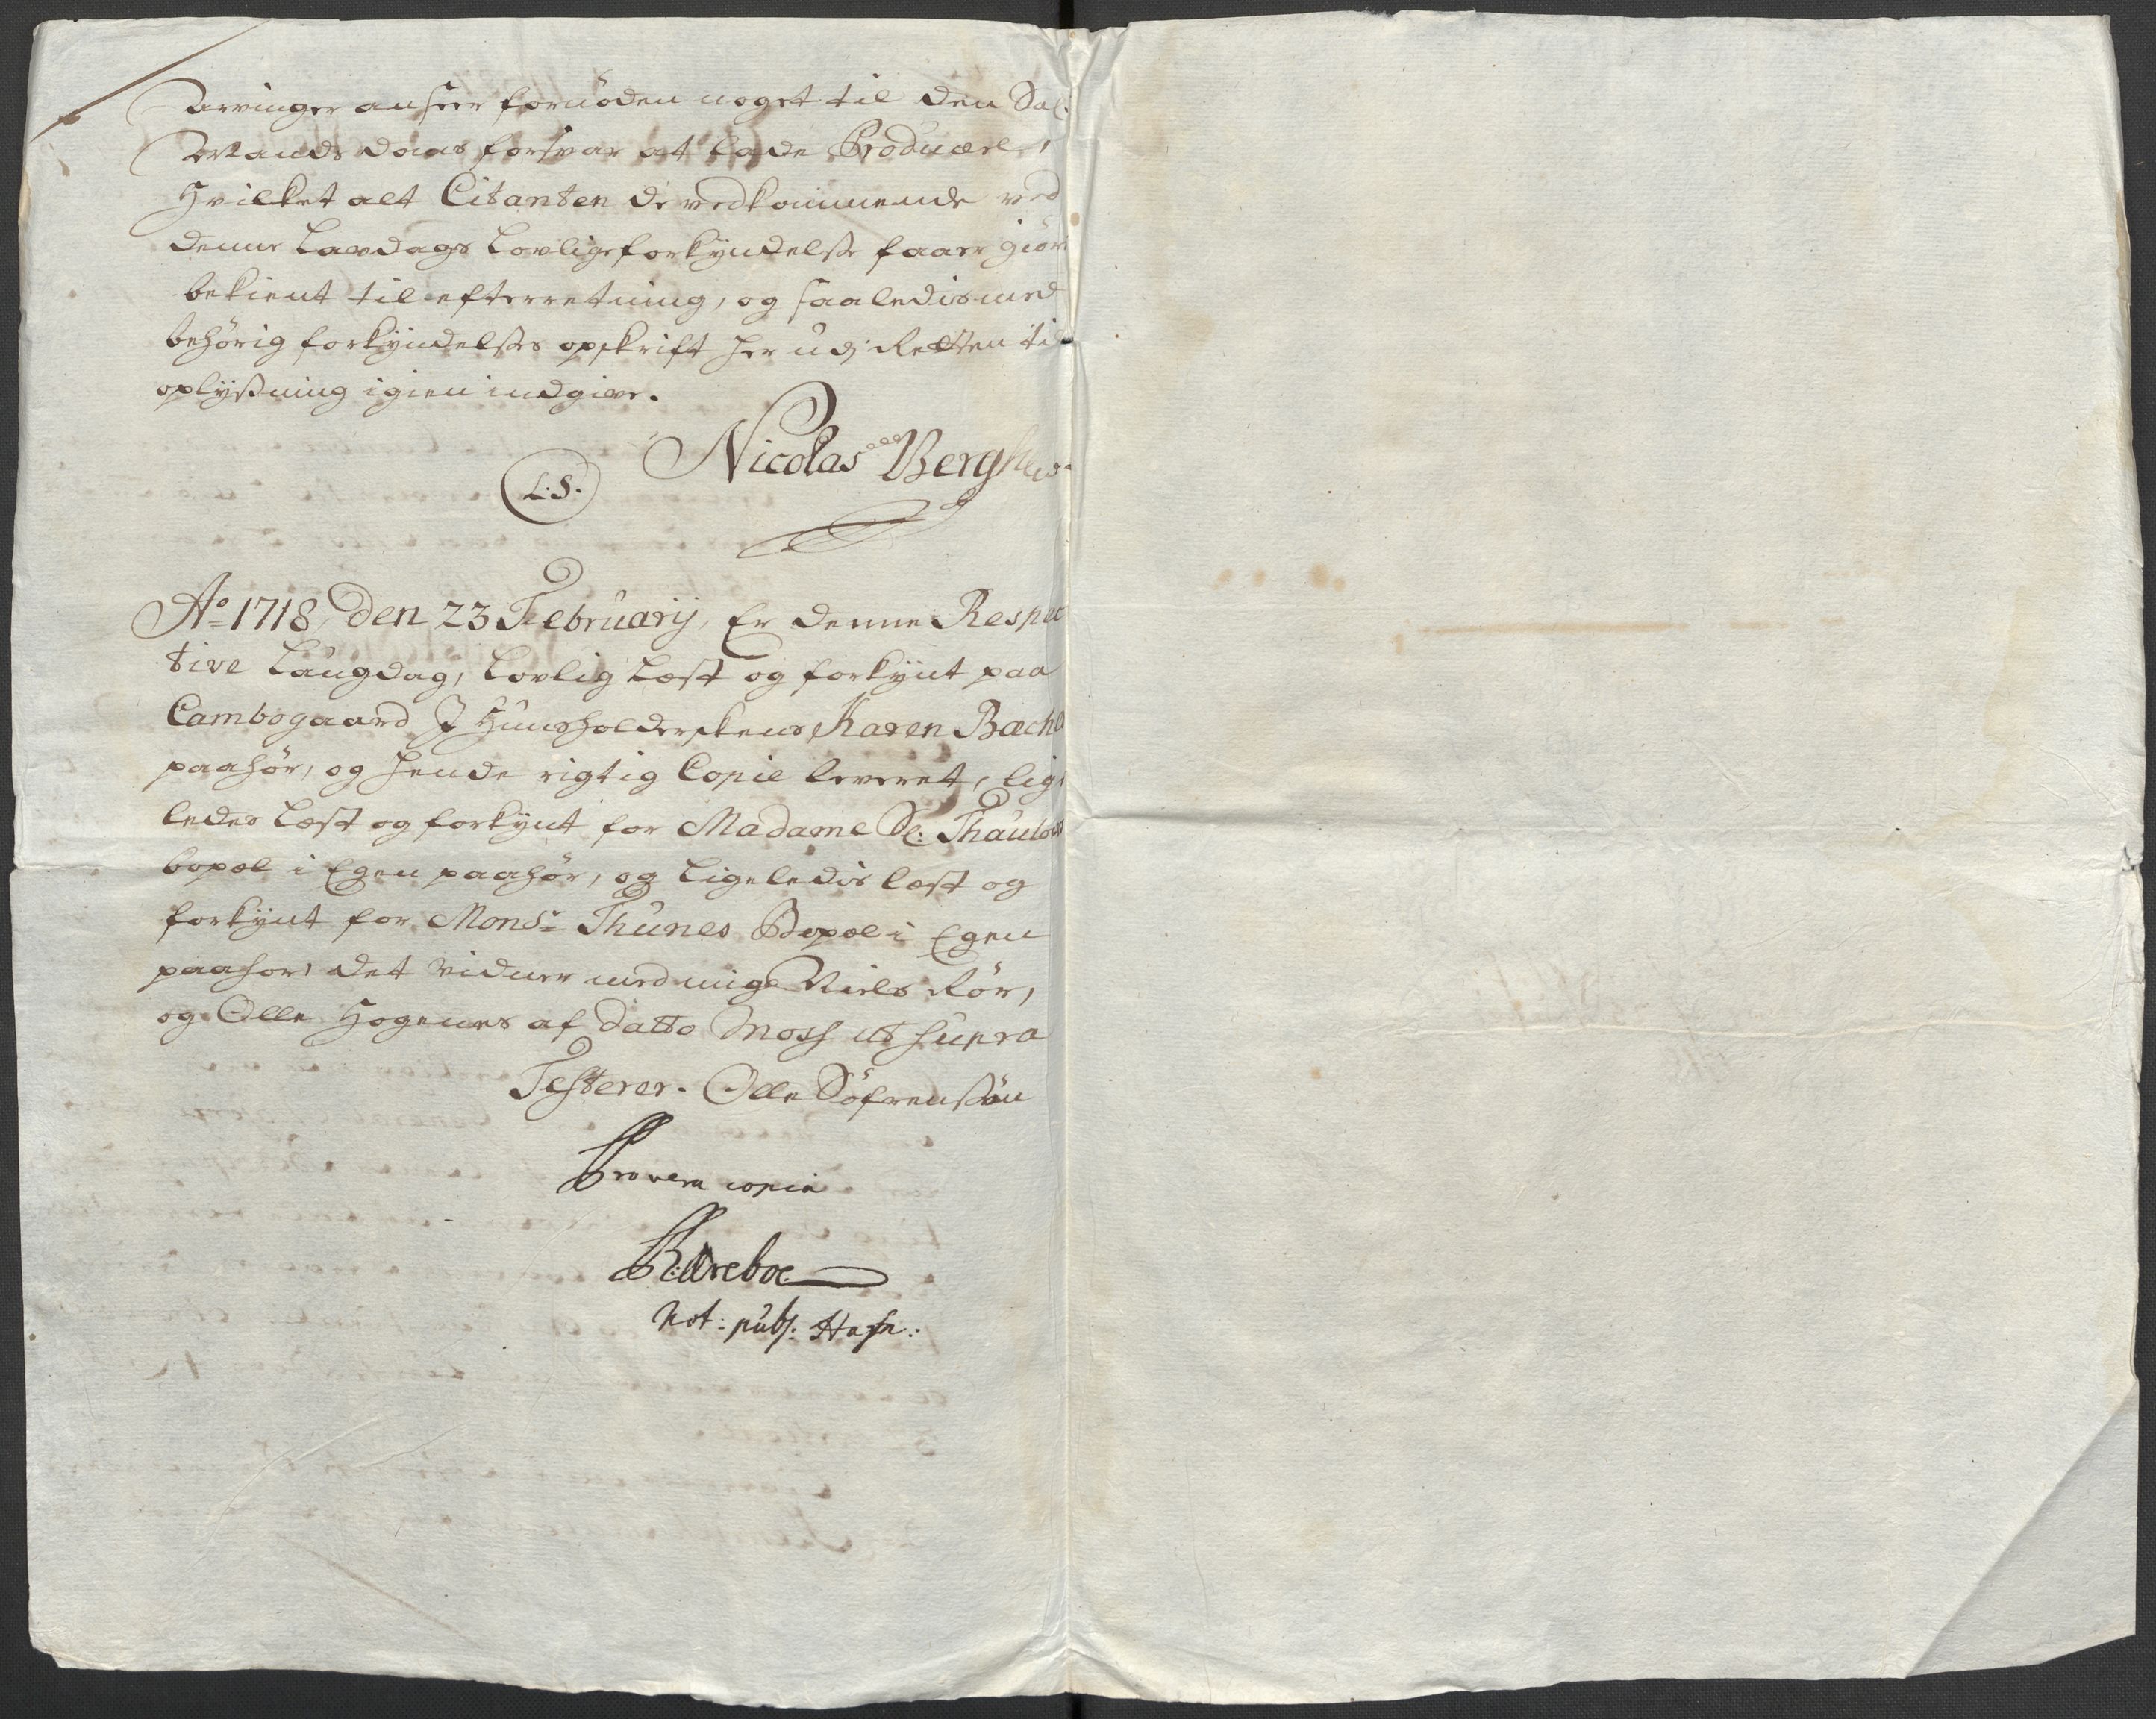 arvinger anseer fornöden noget til den Sal:
Mands daas forsvar at lade Producere,
Hvilket alt Citanten de vedkommende ved
denne Lavdags Lovlige forkyndelse faaer giöre
bekient til efterretning, og saaledis med
behörig forkyndelses opskrift her udj Retten til
oplysning igien indgive.
Nicolas Berghus.
L:S.
Ao 1718, den 23 Februarij, Er denne Respec
tive Laugdag, Lovlig Læst og forkynt paa
Cambogaard J Huusholderskens Karen Bæche
paahör, og hende rigtig Copie leveret, lige
ledes Læst og forkynt for Madame Sl: Thaulows
bopæl i Egen paahör, og Ligeledis læst og
forkynt for Monsr Thunes Bopæl i Egen
paahör, det vidner med mig Niels Rör,
og Olle Hogenes af datto Moss ut supra
Testerer. Olle Söfrensön
Pro vera copia
R: Areboe
Not: publ: Hafn: